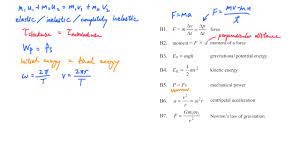 m₁u₁ + m₂u₂ = m₁v₁ + m₂v₂
elastic / inelastic / completely inelastic
τ clockwise = τ anticlockwise
Wp = Fs
initial energy = final energy
ω = 2π/T v = 2πr/T
F = ma F = (mv - mu)/t
B1. F = m Δv/Δt = Δp/Δt force
perpendicular distance
B2. moment = F × d moment of a force
B3. Eₚ = mgh gravitational potential energy
B4. Eₖ = ½mv² kinetic energy
B5. P = Fv mechanical power
B6. a = v²/r = ω²r centripetal acceleration
B7. F = Gm₁m₂/r² Newton's law of gravitation